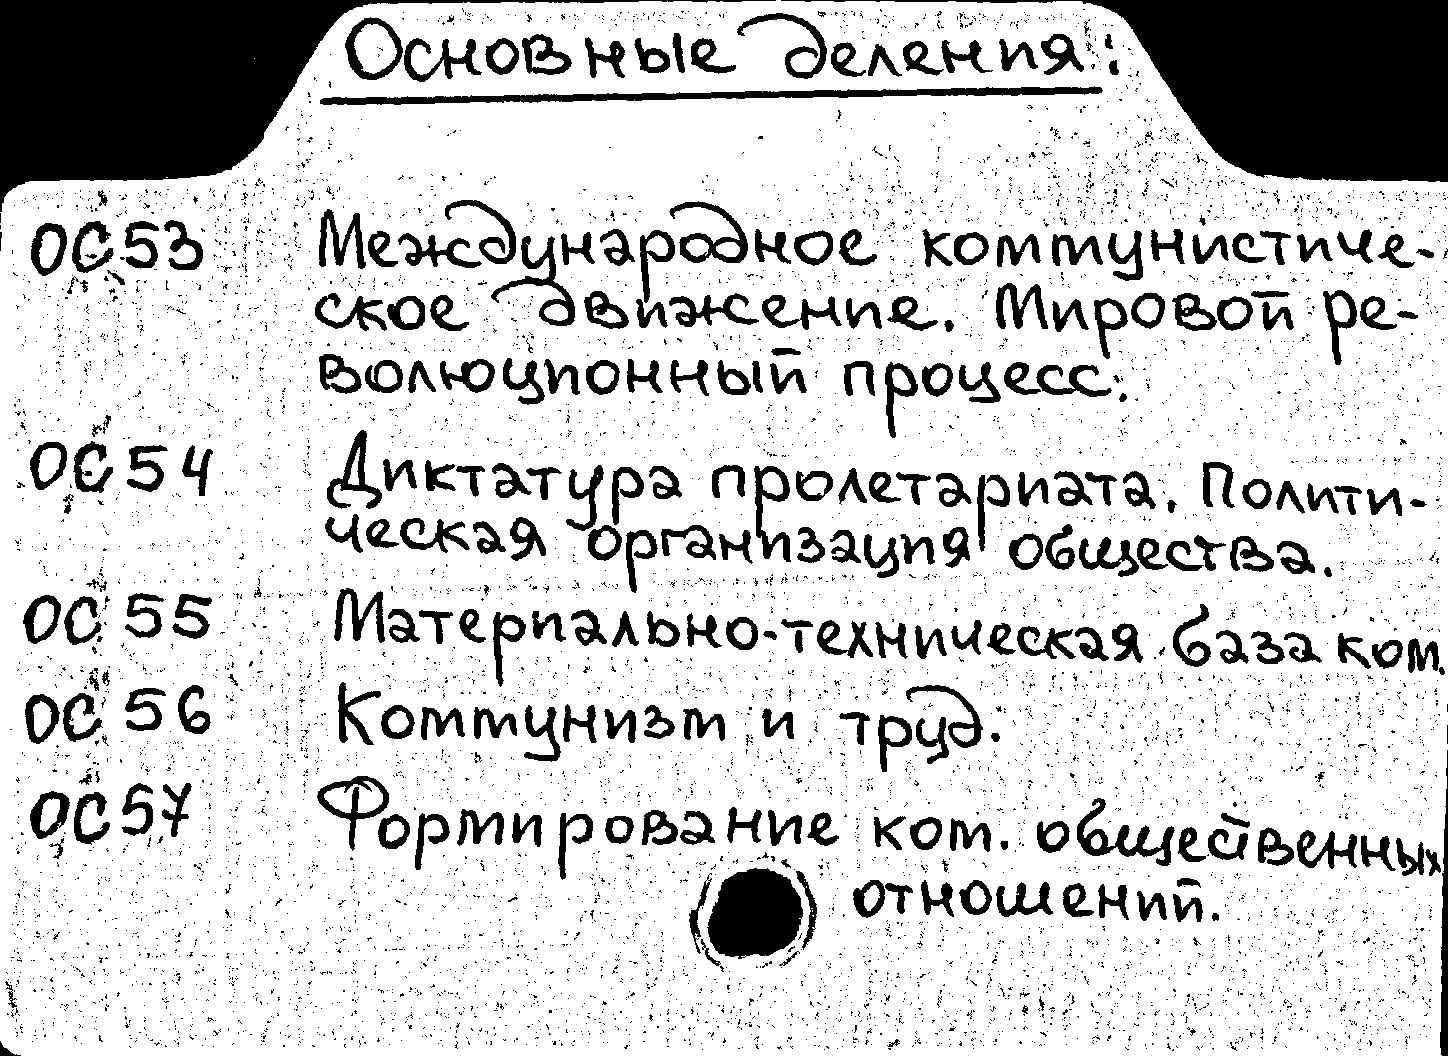 Основные деления:
ОС53 Международное коммунистиче-
ское движение. Мировой ре-
волюционный процесс.
ОС54 Диктатура пролетариата. Полити-
ческая организация общества.
ОС55 Материально-техническая база ком.
ОС56 Коммунизм и труд.
ОС57 Формирование ком. общественных
отношений.